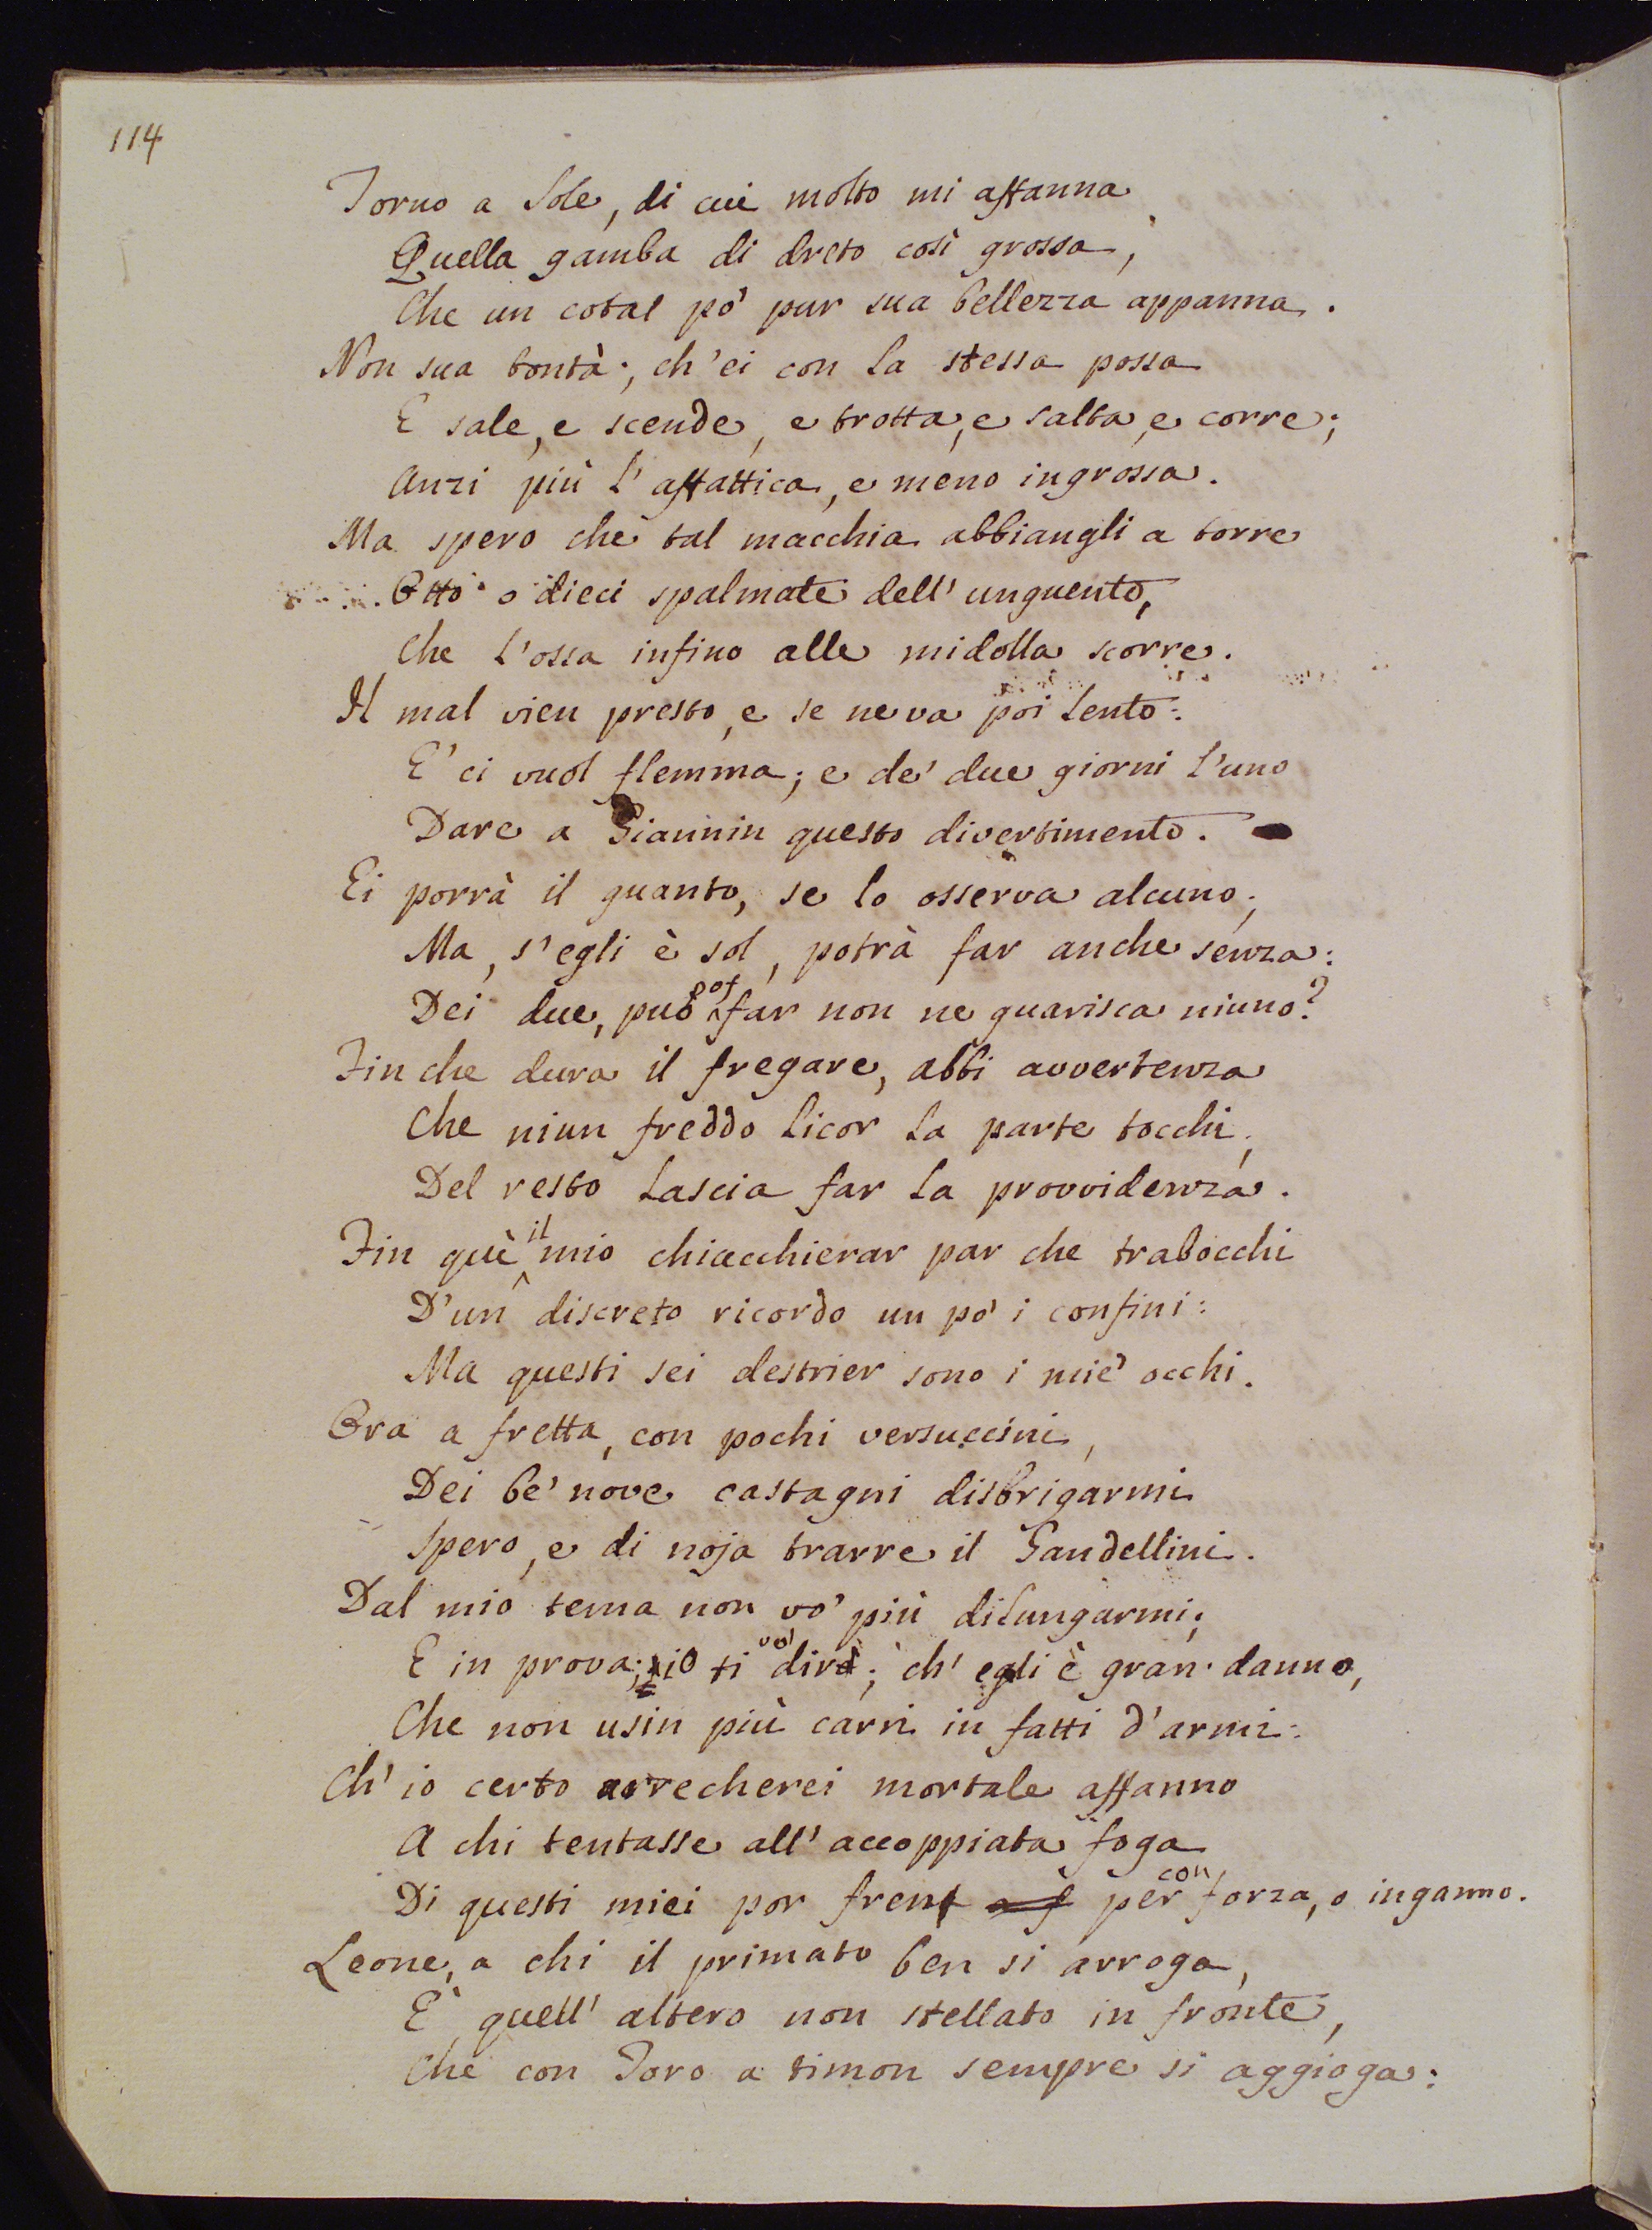 114
Torno a Sole, di cui molto mi affanna
Quella gamba di dreto così grossa,
Che un cotal pò pur sua bellezza appanna.
Non sua bontà; ch'ei con la stessa possa
E sale, e scende, e trotta, e salta, e corre;
Anzi più l'affattica, e meno ingrossa.
Ma spero che tal macchia abbiangli a torre
Otto o dieci spalmate dell'unguento,
Che l'ossa infino alle midolla scorre.
Il mal vien presto, e se ne va poi lento:
E' ci vuol flemma; e de' due giorni l'uno
Dare a Giannin questo divertimento.
Ei porrà il guanto, se lo osserva alcuno;
Ma, s'egli è sol, potrà far anche senza:
Dei due, può far non ne guarisca niuno?
Fin che dura il fregare, abbi avvertenza
Che niun freddo licor la parte tocchi;
Del resto lascia far la provvidenza.
Fin quì il mio chiacchierar par che trabocchi
D'un discreto ricordo un po' i confini:
Ma questi sei destrier sono i mie' occhi.
Ora a fretta, con pochi versuccini,
Dei be' nove castagni disbrigarmi
Spero, e di noja trarre il Gandellini.
Dal mio tema non vo' più dilungarmi;
E in prova; io ti vo' dir; ch'egli è gran danno,
Che non usin più carri in fatti d'armi:
Ch'io certo arrecherei mortale affanno
A chi tentasse all'accoppiata foga
Di questi miei por freno per con forza, o inganno.
Leone, a chi il primato ben si arroga,
E' quell'altero non stellato in fronte,
Che con Toro a timon sempre si aggioga: